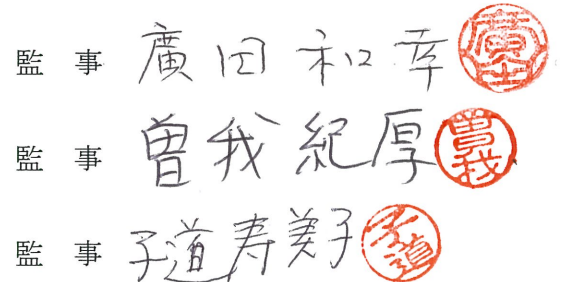 監 事 廣田 和幸 廣田
監 事 曽我 紀厚 曽我
監 事 子道 寿美子 子道